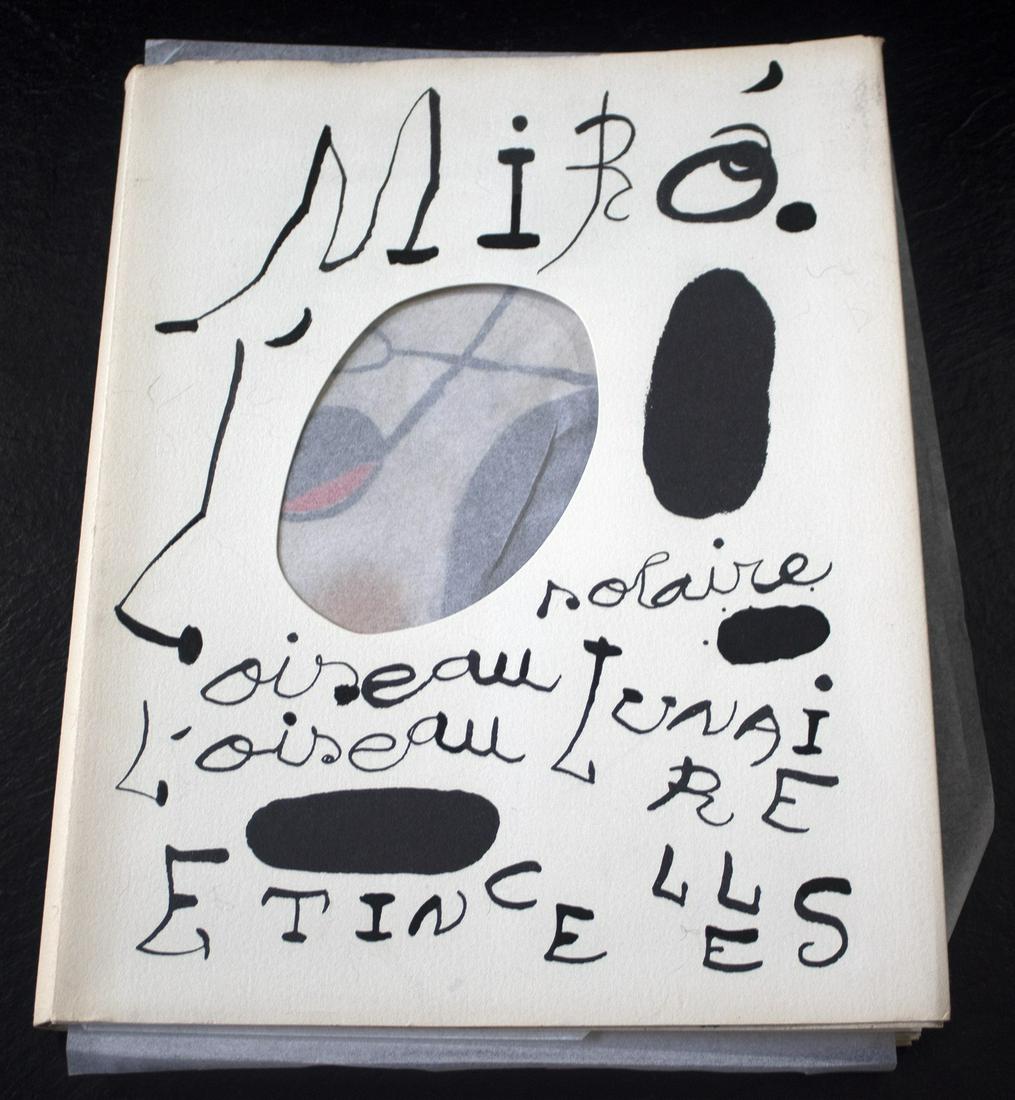 MiRó.
L'oiseau solaire
L'oiseau LUNAi
RE
ETINCELLES